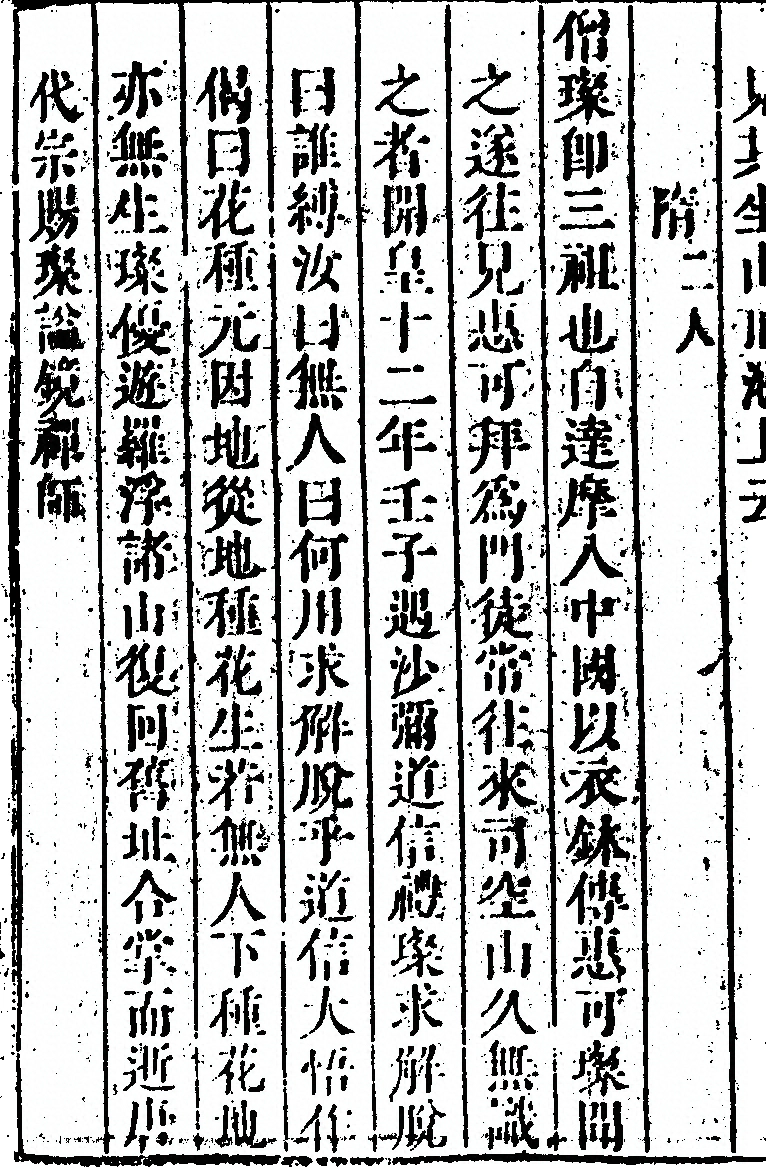 隋二人
僧璨即三祖也自達摩入中國以衣鉢傳惠可璨聞
之遂往見惠可拜爲門徒常往來司空山久無識
之者開皇十二年壬子遇沙彌道信禮璨求解脫
曰誰縛汝曰無人曰何用求解脫乎道信大悟作
偈曰花種元因地從地種花生若無人下種花地
亦無生璨優遊羅浮諸山復回舊址合掌而逝唐
代宗賜璨諡鏡禪師